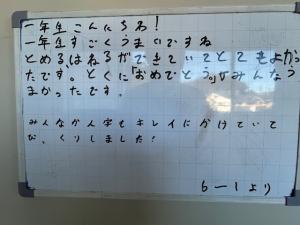 一年生こんにちわ!
一年生すごくうまいですね
とめるはねるができていてとてもよかっ
たです。とくに「おめでとう」がみんなう
まかったです。
みんなかん字もキレイに分けていて
び、くりしました!
6-1より